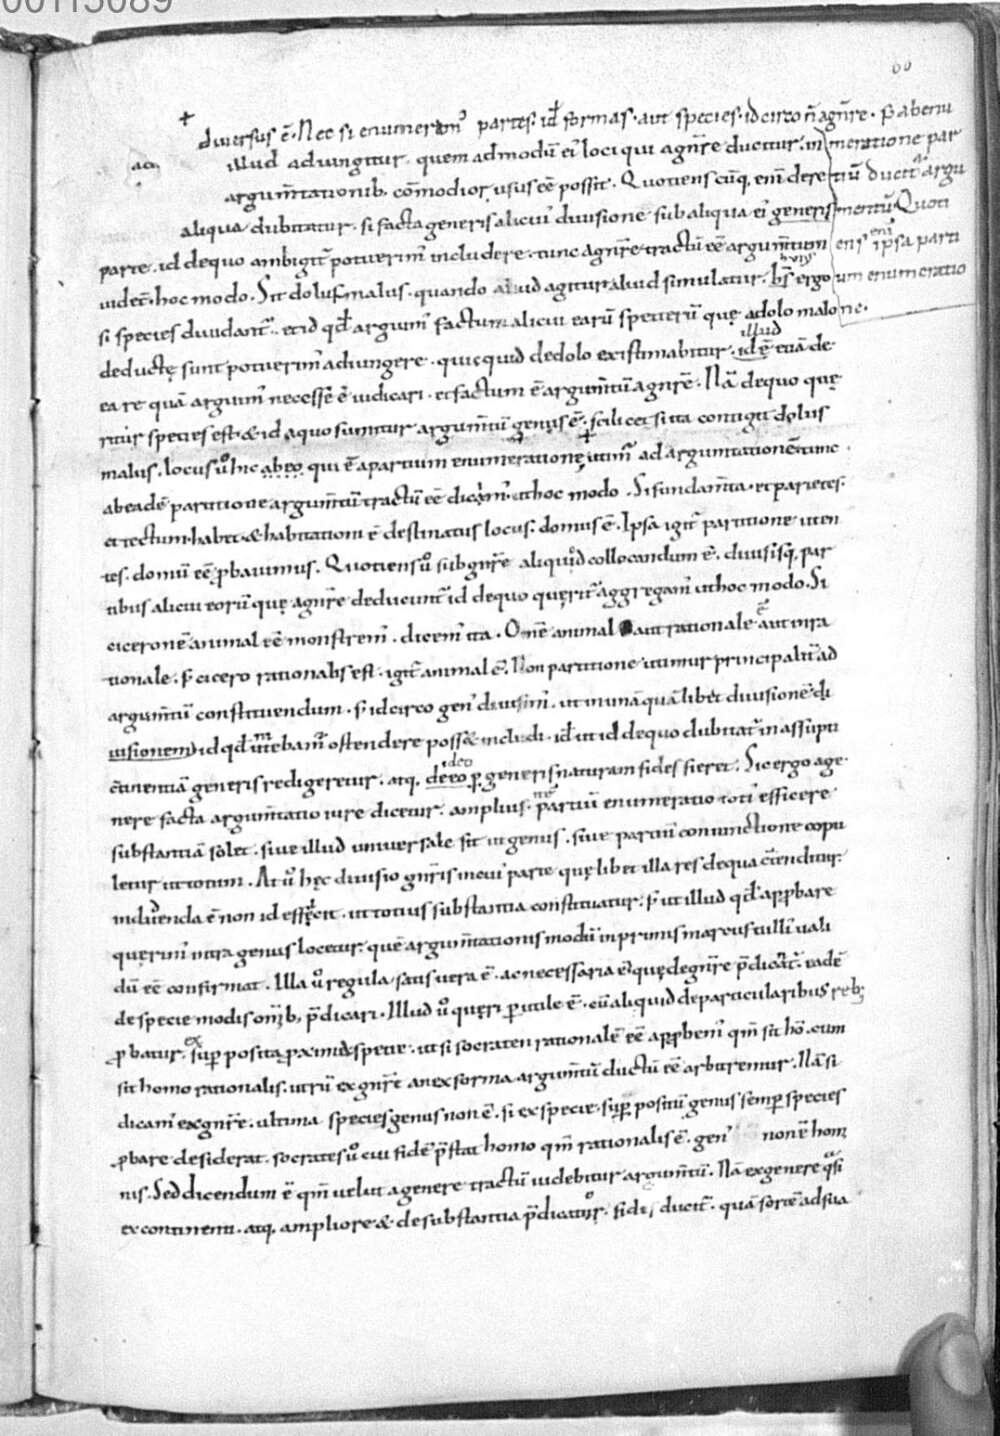 00115089
60
diuersus ē. Nec si enumeram᷒ partes. id̄ formas. aut species. idcirco n̄ agn̄re. s; ab enu
illud adiungitur. quem admodū ei᷒ loci qui agn̄re ducitur. in meratione par
argum̄tationib. cōmodior usus eē possit. Quotiens cūq. eni᷒ de re tiū ducit᷒ argu
aliqua dubitatur. si facta generis alicui᷒ diuisione sub aliqua ei᷒ generis mentū Quoti
parte. id de quo ambigit᷒ potuerim᷒ includere. tunc agn̄re tractū eē argum̄tum ens eni᷒ ipsa parti
uidet᷒. hoc modo. Sit dolus malus. quando aliud agitur aliud simulatur. ergo um enumeratio
si species diuidant᷒. et id qd̄ argum̄ factum alicui earū specierū quę a dolo malo ne.
deductę sunt potuerim᷒ adiungere. quicquid de dolo existimabitur. illud id ē etiā de
ea re quā arguim᷒ necesse ē iudicari. et factum ē argum̄tū agn̄re. Nā de quo quę
ritur species est. & id a quo sumitur argum̄tū genus ē. scilicet si ita contigit dolus
malus. locus ū hic ab eo qui ē a partium enumeratione utim᷒ ad argumtationē tunc
ab eadē partitione argum̄tū tractū eē dicim᷒. ut hoc modo. Si fundam̄ta. et parietes.
et tectum habet. & habitationi ē destinatus locus. domus ē. Ipsa igit᷒ partitione uten
tes. domū eē ꝓbauimus. Quotiens ū sub gn̄re aliquid collocandum ē. diuisisq. par
tibus alicui eorū quę agn̄re deducunt᷒ id de quo quęrit᷒ aggregam᷒ ut hoc modo. Si
ciceronē animal eē monstrem᷒. dicem᷒ ita. Om̄e animal aut rationale ē aut inra
tionale. s; cicero rationalis est. igit᷒ animal ē. Non partitione utimur principalit᷒ ad
argum̄tū constituendum. s; idcirco gen᷒ diuisim᷒. ut in unā quālibet diuisionē di
uisionem id qd̄ intebam᷒ ostendere possit includi. id̄ ut id de quo dubitat᷒ in assūpti
c̄tinentiā generis redigeretur. atq. de eo ideo ꝓ generis naturam fides fieret. Sic ergo age
nere facta argum̄tatio iure dicetur. amplius. partiū enumeratio toti᷒ efficere
substantiā solet. siue illud uniuersale sit ut genus. siue partiū coniunctione copu
letur ut totum. At ū hęc diuisio gn̄ris in cui᷒ parte quę libet illa res de qua c̄tenditur.
includenda ē non id efficit. ut totius substantia constituatur. s; ut illud qd̄ approbare
quęrim᷒ intra genus locetur. quē argum̄tationis modū inprimis marcus tulli᷒ uali
dū eē confirmat. Illa ū regula satis uera ē. ac necessaria ei᷒ quę de gn̄re p̄dicat᷒. eadē
de specie modis om̄ib. p̄dicari. Illud ū quęri perutile ē. cū aliquid de particularibus reb;
ꝓbatur. ex sup posita ꝓxima specie. ut si socraten rationalē eē approbem᷒ qm̄ sit hō. cum
sit homo rationalis. utrū ex gn̄re an ex forma argum̄tū ductū eē arbitremur. Nā si
dicam᷒ ex gn̄re. ultima species genus non ē. si ex specie. sup positū genus semp species
ꝓbare desiderat. socrates ū cui fidē p̄stat homo qm̄ rationalis ē. gen᷒ non ē homi
nis. Sed dicendum ē qm̄ uelut a genere tractū uidebitur argum̄tū. Nā ex genere quasi
ex continenti. atq. ampliore & de substantia p̄dicatur. fides ducit᷒. quā sortē ad sua